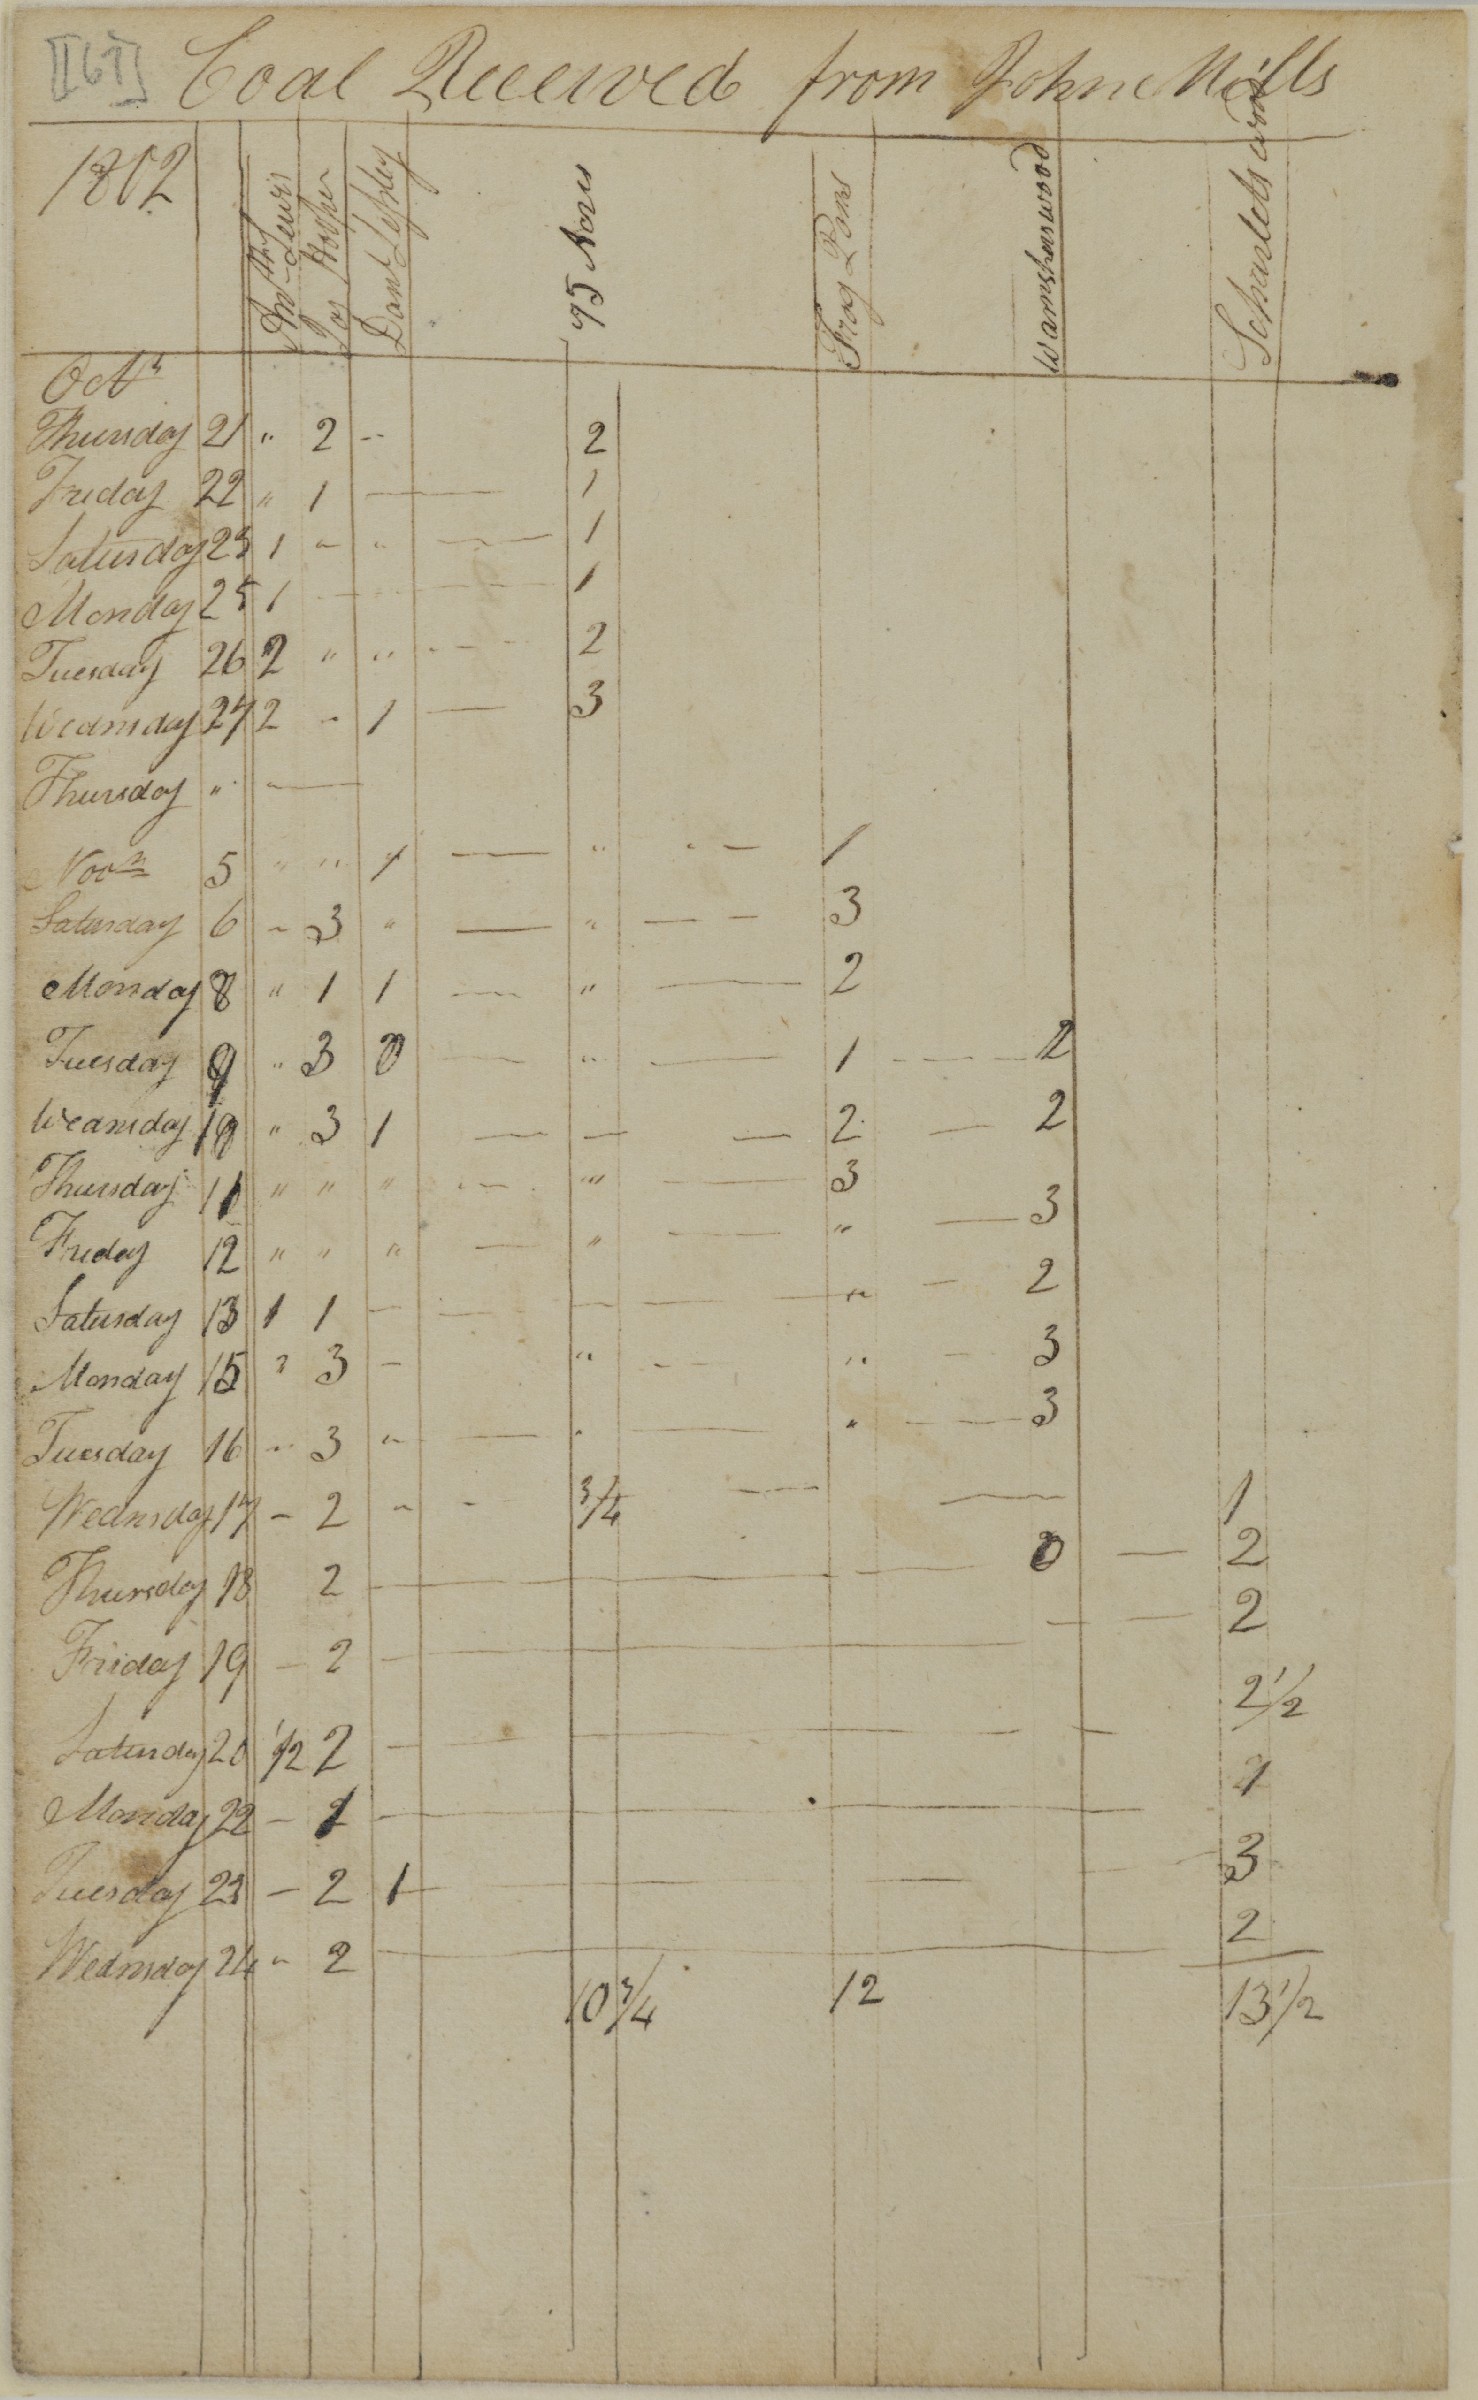 [167] Coal Received from John Mills
1802
Anthy Lewis
Jas Hosher
Danl Leshley
95 Acres
Frog Pond
Warnsherswood
Scharlets wood
Octr
Thursday 21 " 2 -- 2
Friday 22 " 1 — 1
Saturday 23 1 " " — 1
Monday 25 1 — 1
Tuesday 26 2 " " --- 2
Wednsday 27 2 " 1 — 3
Thursday " —
Novm 5 " " 1 — " -- 1
Saturday 6 " 3 " — " — 3
Monday 8 " 1 1 — " — 2
Tuesday 9 " 3 0 — " — 1 — 2
Wednsday 10 " 3 1 — — — 2 — 2
Thursday 11 " " " — " — 3 — 3
Friday 12 " " " — " — " — 2
Saturday 13 1 1 — — — — " — 3
Monday 15 " 3 — " — " — 3
Tuesday 16 " 3 " — " — "
Wednsday 17 - 2 " - 3/4 — — 1
Thursday 18 2 — 0 — 2
Friday 19 - 2 — 2
Saturday 20 1/2 2 — 2 1/2
Monday 22 - 1 — 1
Tuesday 23 - 2 1 — 3
Wednsday 24 " 2 — 2
10 3/4 12 13 1/2